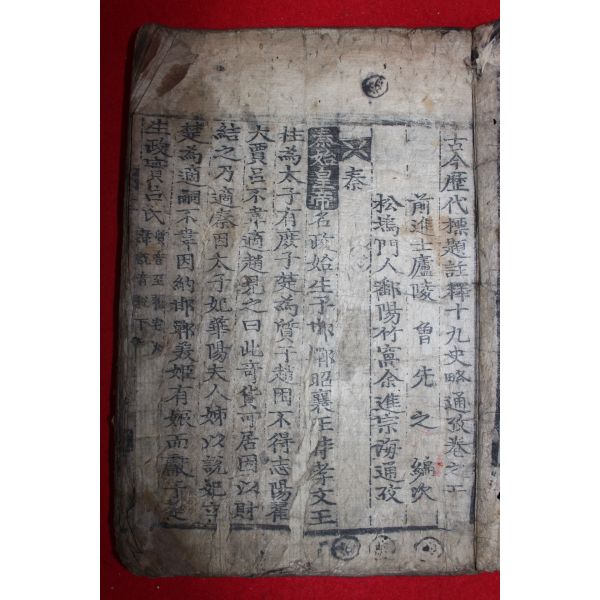 古今歷代標題註釋十九史略通攷卷之二
前進士廬陵曾先之編次
松塢門人鄱陽竹窩余進宗海通攷
秦
秦始皇帝名政始生于邯鄲昭襄王時孝文王
柱為太子有庶子楚為質于趙困不得志陽翟
大賈呂不韋適趙見之曰此奇貨可居因以財
結之乃適秦因太子妃華陽夫人姊以說妃立
楚為適嗣不韋因納邯鄲美姬有娠而獻于楚
生政實呂氏